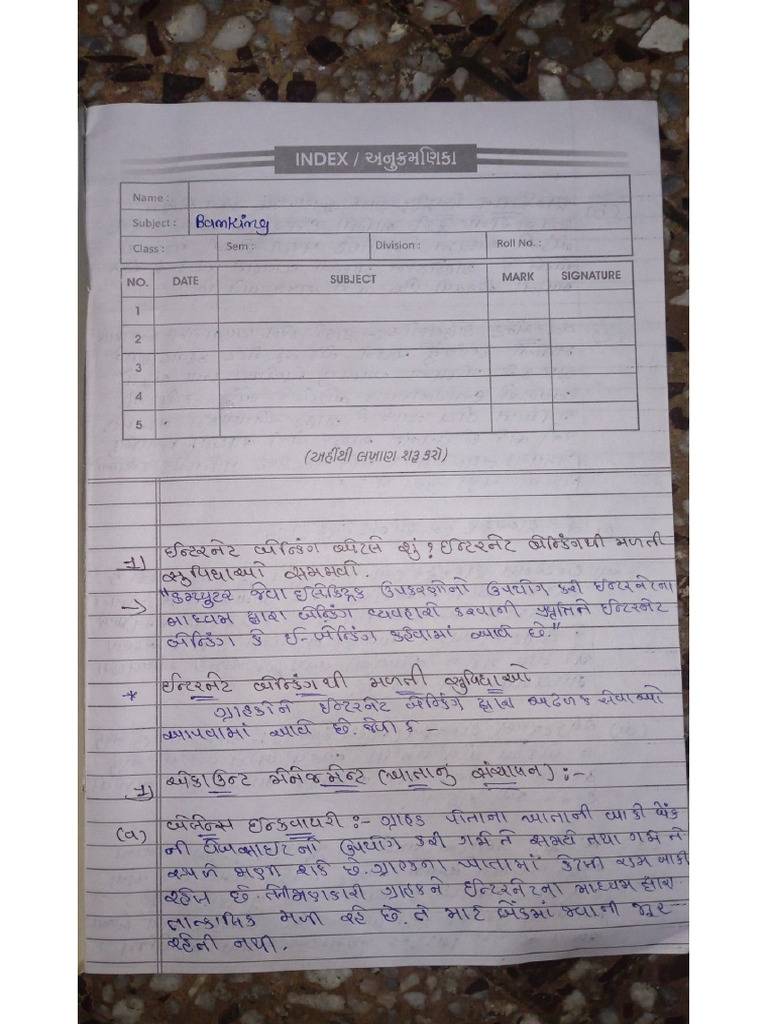 INDEX / અનુક્રમણિકા
Name :
Subject : Banking
Class : Sem : Division : Roll No. :
NO. DATE SUBJECT MARK SIGNATURE
1
2
3
4
5
(અહીંથી લખાણ શરૂ કરો)
1) ઈન્ટરનેટ બેન્કિંગ એટલે શું? ઈન્ટરનેટ બેન્કિંગથી મળતી
સુવિધાઓ સમજાવો.
→ "કમ્પ્યુટર જેવા ઈલેક્ટ્રિક ઉપકરણોનો ઉપયોગ કરી ઈન્ટરનેટના
માધ્યમ દ્વારા બેન્કિંગ વ્યવહારો કરવાની પ્રવૃત્તિને ઈન્ટરનેટ
બેન્કિંગ કે ઈ-બેન્કિંગ કહેવામાં આવે છે."
* ઈન્ટરનેટ બેન્કિંગથી મળતી સુવિધાઓ
ગ્રાહકોને ઈન્ટરનેટ બેન્કિંગ દ્વારા અઢળક સેવાઓ
આપવામાં આવે છે. જેવી કે -
1) એકાઉન્ટ મેનેજમેન્ટ (ખાતાનું સંચાલન) :-
(a) બેલેન્સ ઈન્કવાયરી :- ગ્રાહક પોતાના ખાતાની બાકી બેંક
ની વેબસાઈટનો ઉપયોગ કરી ગમે તે સમયે તથા ગમે તે
સ્થળે મેળવી શકે છે. ગ્રાહકના ખાતામાં કેટલી રકમ બાકી
રહેલ છે. તેની જાણકારી ગ્રાહકને ઈન્ટરનેટના માધ્યમ દ્વારા
તાત્કાલિક મળી રહે છે. તે માટે બેંકમાં જવાની જરૂર
રહેતી નથી.